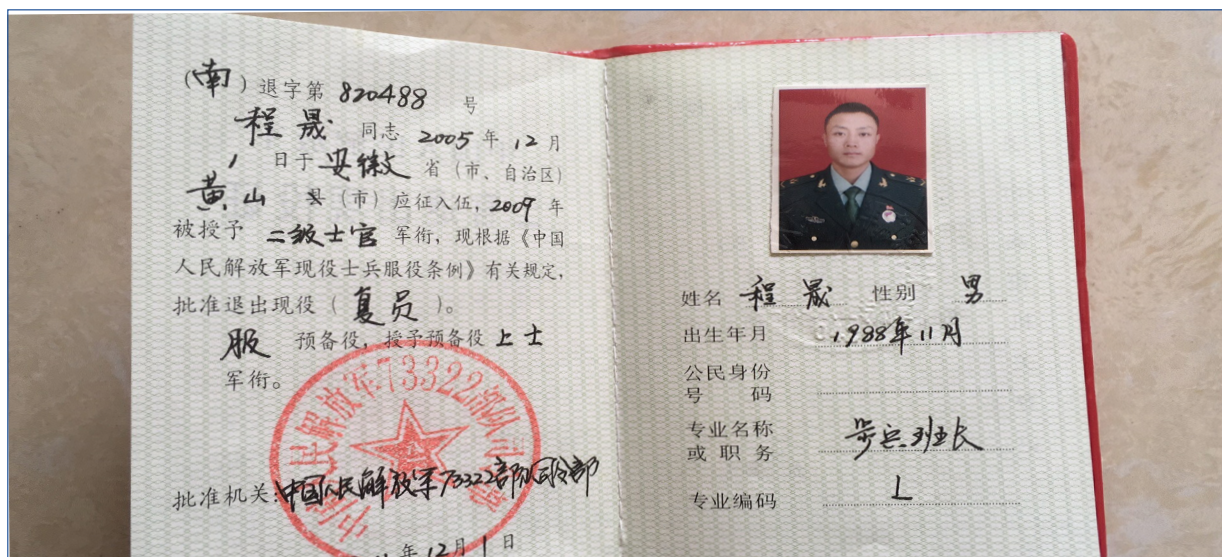 (南)退字第 820488 号
程晟 同志 2005 年 12 月
1 日于 安徽 省(市、自治区)
黄山 县(市)应征入伍,2009 年
被授予 二级士官 军衔,现根据《中国
人民解放军现役士兵服役条例》有关规定,
批准退出现役(复员)。
服 预备役,授予预备役 上士
军衔。
中国人民解放军73322部队司令部
批准机关:中国人民解放军73322部队司令部
年 12 月 1 日
姓名 程晟 性别 男
出生年月 1988年11月
公民身份
号码
专业名称 步兵班长
或职务
专业编码 L